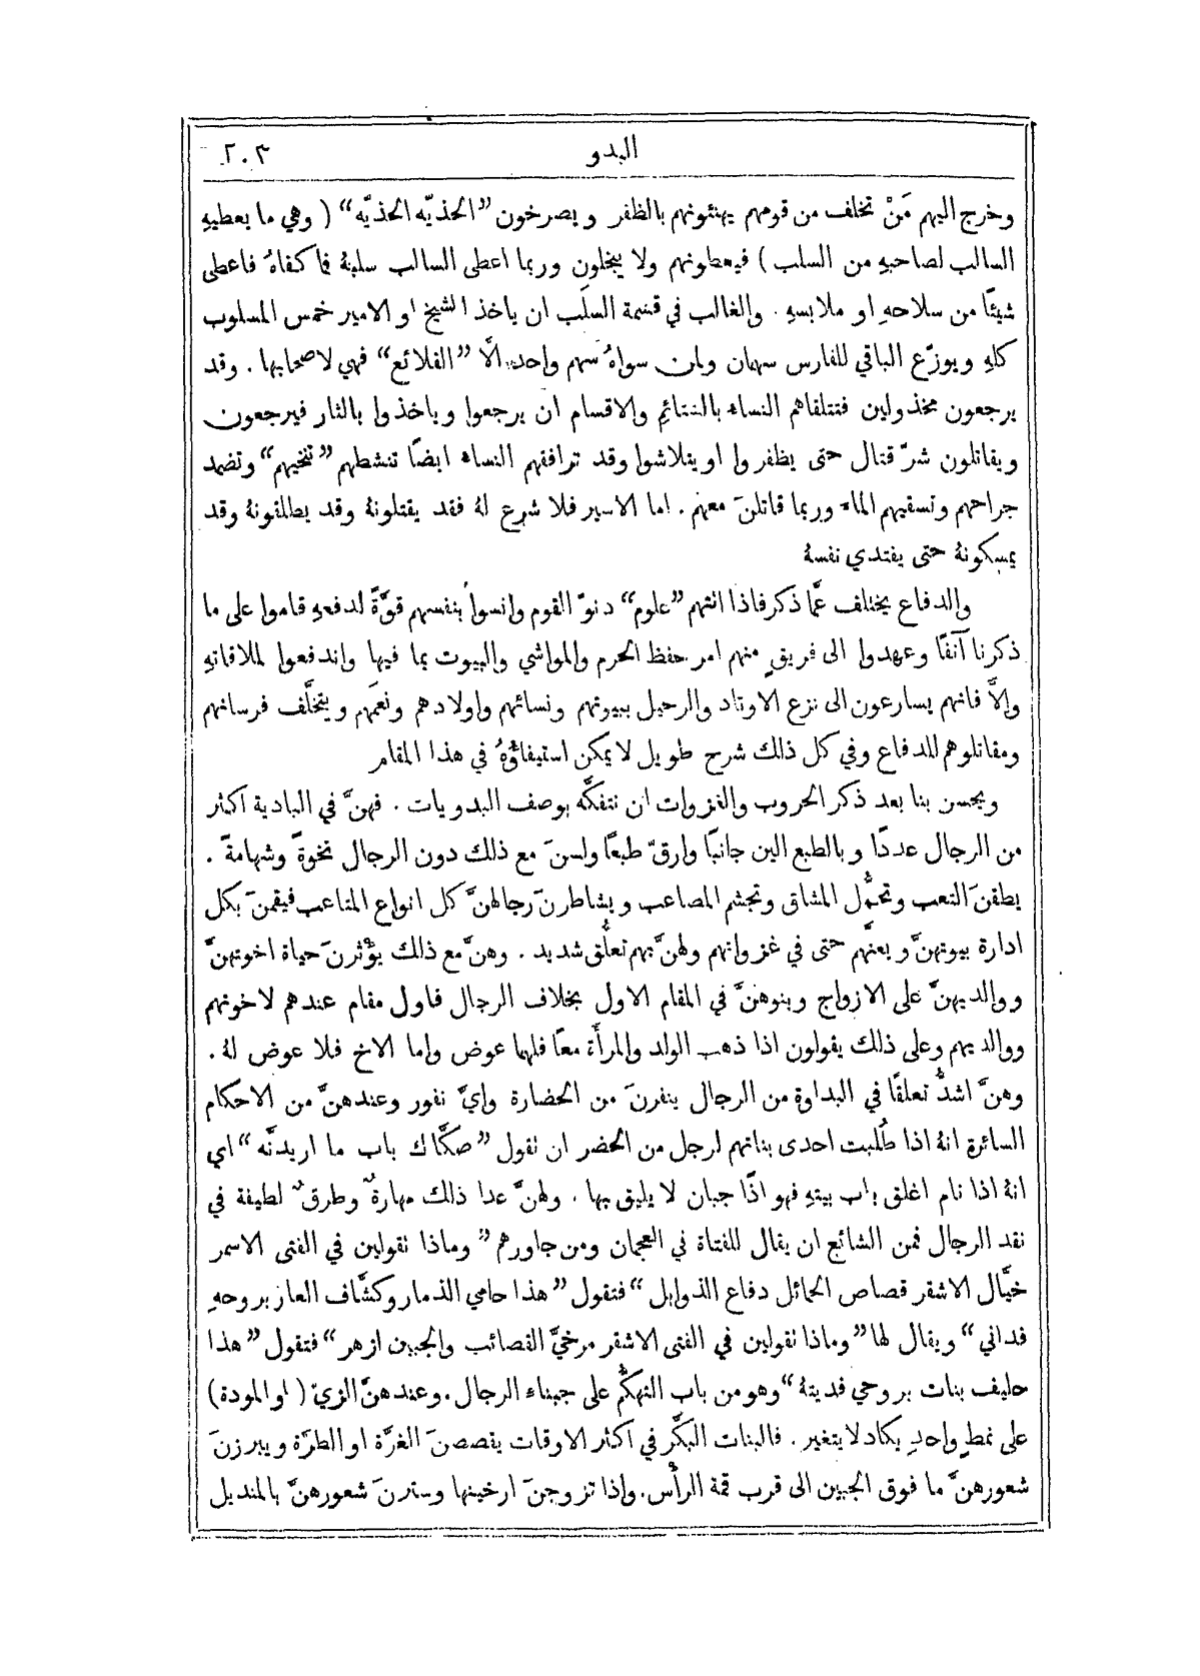 البدو
٢٠٣
وخرج اليهم مَنْ تخلف من قومهم يهنئونهم بالظفر ويصرخون ”الحذيّه الحذيّه“ ( وهي ما يعطيهِ
السالب لصاحبهِ من السلب ) فيعطونهم ولا يبخلون وربما اعطى السالب سلبهُ فما كفاهُ فاعطى
شيئًا من سلاحهِ او ملابسهِ . والغالب في قسمة السلَب ان ياخذ الشيخ او الامير خمس المسلوب
كلهِ ويوزّع الباقي للفارس سهمان ولمن سواهُ سهم واحد الَّا ”القلائع“ فهي لاصحابها . وقد
يرجعون مخذولين فتتلقاهم النساء بالشتائم والاقسام ان يرجعوا وياخذوا بالثار فيرجعون
ويقاتلون شرّ قتال حتى يظفروا او يتلاشوا وقد ترافقهم النساء ايضًا تنشطهم ”تنخيهم“ وتضمد
جراحهم وتسقيهم الماء وربما قاتلنَ معهم . اما الاسير فلا شرع لهُ فقد يقتلونهُ وقد يطلقونهُ وقد
يمسكونهُ حتى يفتدي نفسهُ
والدفاع يختلف عمَّا ذكر فاذا اتتهم ”علوم“ دنوّ القوم وانسوا بنفسهم قوَّةً لدفعهِ قاموا على ما
ذكرنا آنفًا وعهدوا الى فريقٍ منهم امر حفظ الحرم والمواشي والبيوت بما فيها واندفعوا لملاقاتهِ
والَّا فانهم يسارعون الى نزع الاوتاد والرحيل ببيوتهم ونسائهم واولادهم ونعَمهم ويتخلَّف فرسانهم
ومقاتلوهم للدفاع وفي كل ذلك شرح طويل لا يمكن استيفاؤهُ في هذا المقام
ويحسن بنا بعد ذكر الحروب والغزوات ان نتفكَّه بوصف البدويات . فهنَّ في البادية اكثر
من الرجال عددًا وبالطبع الين جانبًا وارقّ طبعًا ولسنَ مع ذلك دون الرجال نخوةً وشهامةً .
يطقنَ التعب وتحمُّل المشاق وتجشم المصاعب ويشاطرنَ رجالهنَّ كل انواع المتاعب فيقمنَ بكل
ادارة بيوتهنَّ وبعنَهم حتى في غزواتهم ولهنَّ بهم تعلُّق شديد . وهنَّ مع ذلك يؤْثرنَ حياة اخوتهنَّ
ووالديهنَّ على الازواج وبنوهنَّ في المقام الاول بخلاف الرجال فاول مقام عندهم لاخوتهم
ووالديهم وعلى ذلك يقولون اذا ذهب الولد والمرأَة معًا فلهما عوض واما الاخ فلا عوض لهُ .
وهنَّ اشدُّ تعلقًا في البداوة من الرجال ينفرنَ من الحضارة وايَّ نفور وعندهنَّ من الاحكام
السائرة انهُ اذا طُلبت احدى بناتهم لرجل من الحضر ان تقول ”صكَّاك باب ما اريدنَّه“ اي
انهُ اذا نام اغلق باب بيتهِ فهو اذًا جبان لا يليق بها . ولهنَّ عدا ذلك مهارةٌ وطرقٌ لطيفة في
نقد الرجال فمن الشائع ان يقال للفتاة في العجمان ومن جاورهم ”وماذا تقولين في الفتى الاسمر
خيَّال الاشقر قصاص الحمائل دفاع الذوابل“ فتقول ”هذا حامي الذمار وكشَّاف العار بروحهِ
فداني“ ويقال لها ”وماذا تقولين في الفتى الاشقر مرخيَّ القصائب والجبين ازهر“ فتقول ”هذا
حليف بنات بروحي فديتهُ“ وهو من باب التهكُّم على جبناء الرجال . وعندهنَّ الزيّ ( او المودة )
على نمطٍ واحدٍ يكاد لا يتغير . فالبنات البكَّر في اكثر الاوقات يقصصنَ الغرَّة او الطرَّة ويبرزنَ
شعورهنَّ ما فوق الجبين الى قرب قمة الرأْس. واذا تزوجنَ ارخينها وسترنَ شعورهنَّ بالمنديل